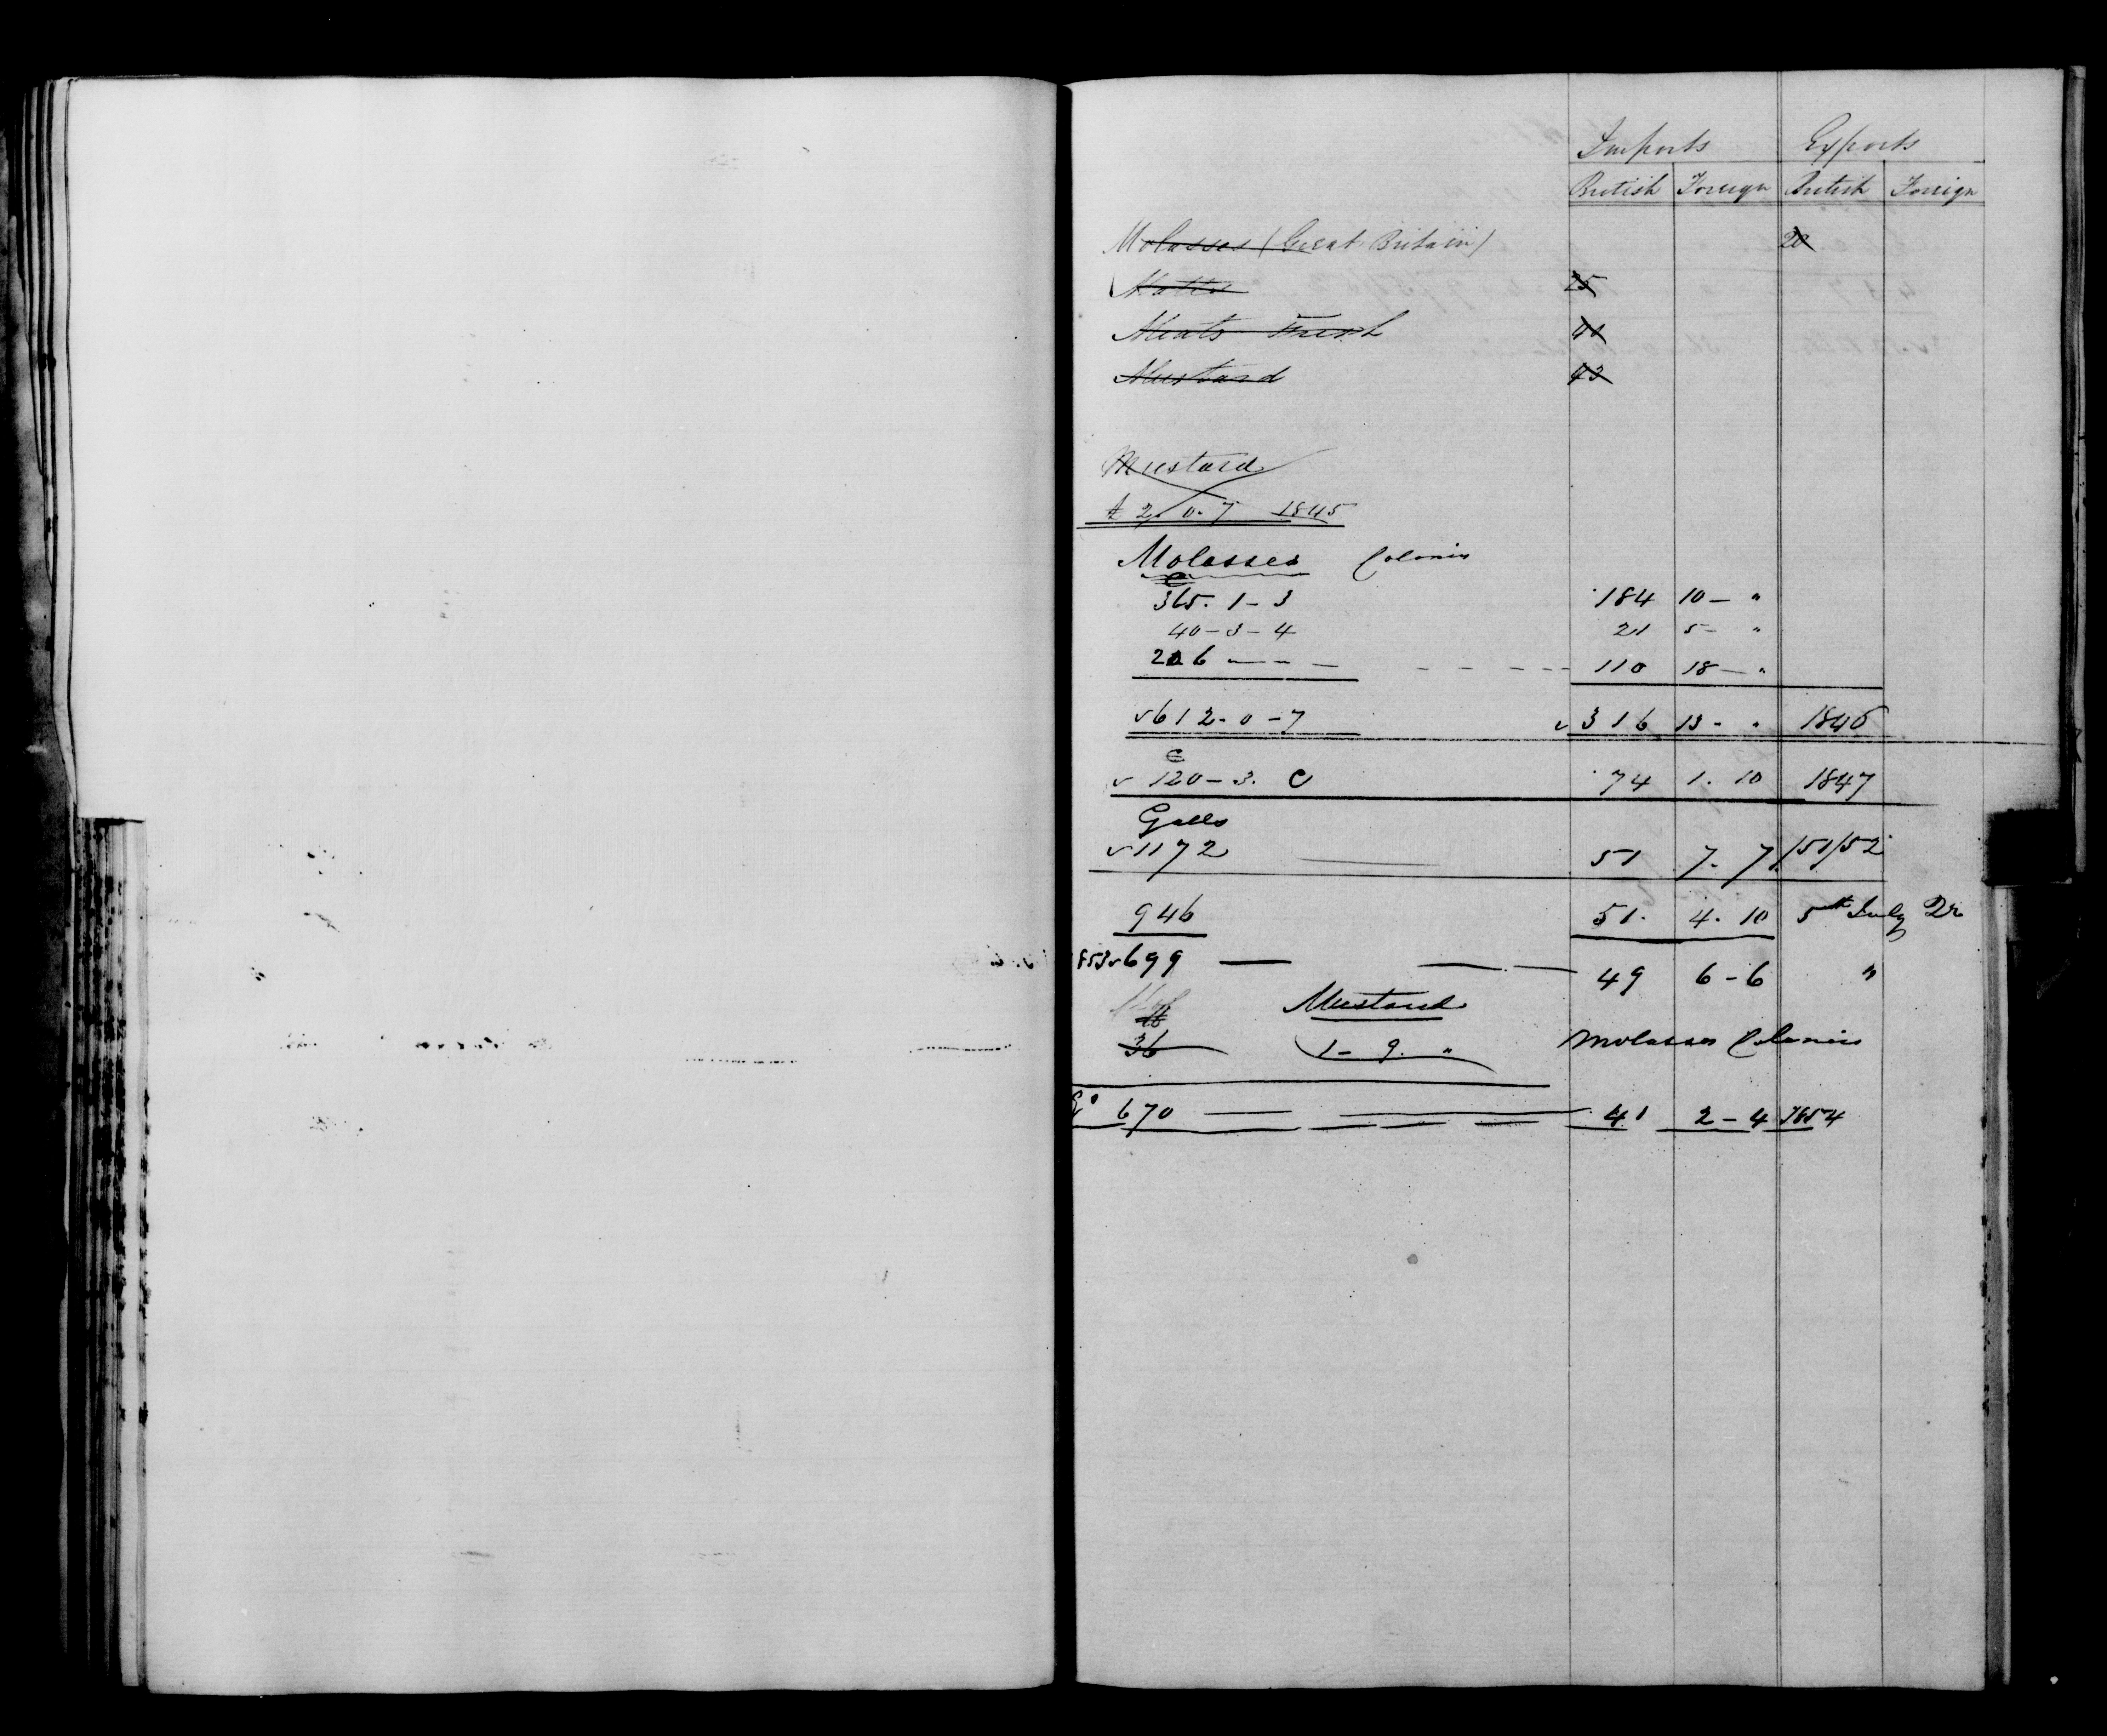 Imports Exports
British Foreign British Foreign
Molasses (Great Britain) 20
25
Meats Fresh 41
Mustard 43
Mustard
2. 0. 7 1845
Molasses Colonies
C
365. 1 - 3 184 10 - "
40 - 3 - 4 21 5 - "
206 - - - 110 18 - "
✓612 - 0 - 7 ✓316 13 - " 1846
C
✓ 120 - 3. 0 74 1. 10 1847
Galls
✓1172 51 7. 7 /51/52
946 51. 4. 10 5th July
853 ✓699 — — 49 6 - 6 "
Mustard
lb
36 1 - 9. " Molasses Colonies
670 — — 41 2 - 4 1854